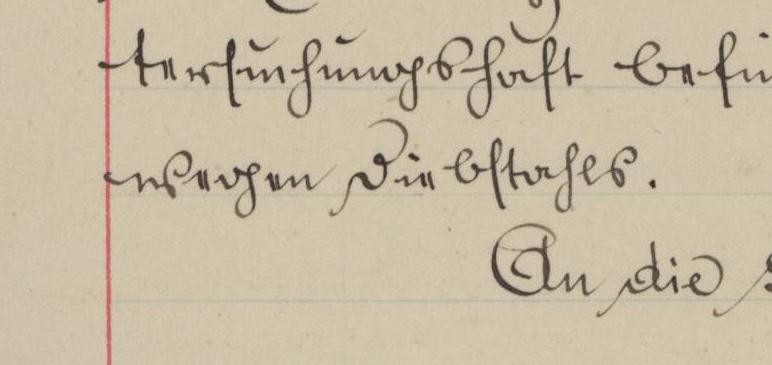 tersuchungshaft befin
wegen Diebstahls.
An die